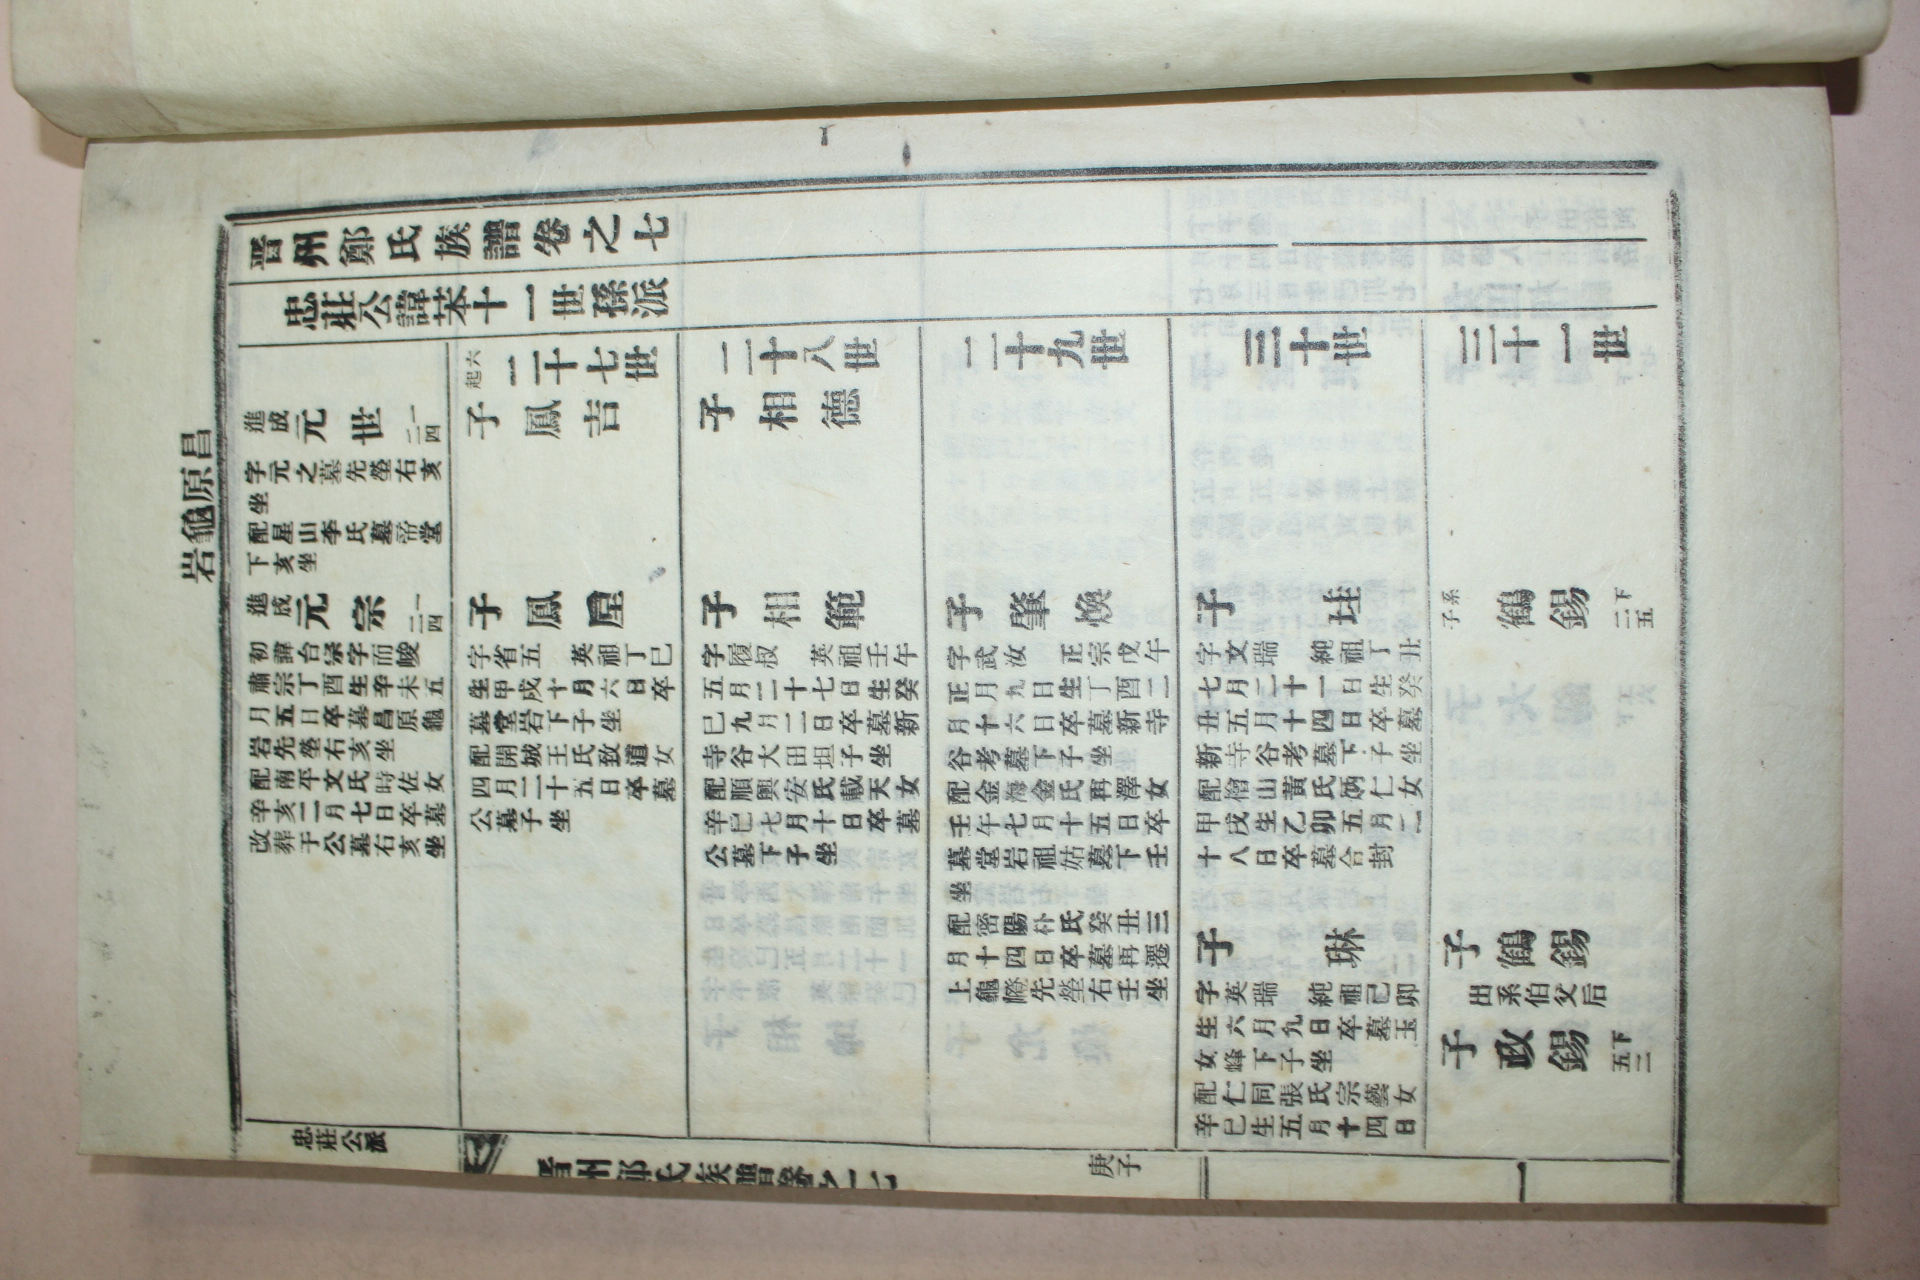 晋州鄭氏族譜卷之七
忠莊公諱苯十一世孫派
昌原龜岩
進成
元世
一二四
字元之墓先塋右亥
坐
配星山李氏墓帝堂
下亥坐
進成
元宗
一二四
初諱台宗字而峻
肅宗丁酉生辛未五
月五日卒墓昌原龜
岩先塋右亥坐
配南平文氏時佐女
辛亥二月七日卒墓
改葬于公墓右亥坐
六起
二十七世
子鳳吉
子鳳星
字省五 英祖丁巳
生甲戌十月六日卒
墓堂岩下子坐
配開城王氏致道女
四月二十五日卒墓
公墓子坐
二十八世
子相德
子相範
字履叔 英祖壬午
五月二十七日生癸
巳九月二日卒墓新
寺谷大田坦子坐
配順興安氏載天女
辛巳七月十日卒墓
公墓下子坐
二十九世
子肇煥
字武汝 正宗戊午
正月九日生丁酉二
月十六日卒墓新寺
谷考墓下子坐
配金海金氏再澤女
壬午七月十五日卒
墓堂岩祖姑墓下壬
坐
配密陽朴氏癸丑三
月十四日卒墓再遷
上龜隥先塋右壬坐
三十世
子珪
字文瑞 純祖丁丑
七月二十一日生癸
丑五月十四日卒墓
新寺谷考墓下子坐
配檜山黃氏炳仁女
甲戌生乙卯五月二
十八日卒墓合封
子琳
字英瑞 純祖己卯
生六月九日卒墓玉
女峰下子坐
配仁同張氏宗藝女
辛巳生五月十四日
三十一世
系子
鶴錫
下二五
子鶴錫
出系伯父后
子政錫
下五二
忠莊公派
晋州鄭氏族譜卷之七
庚子
一